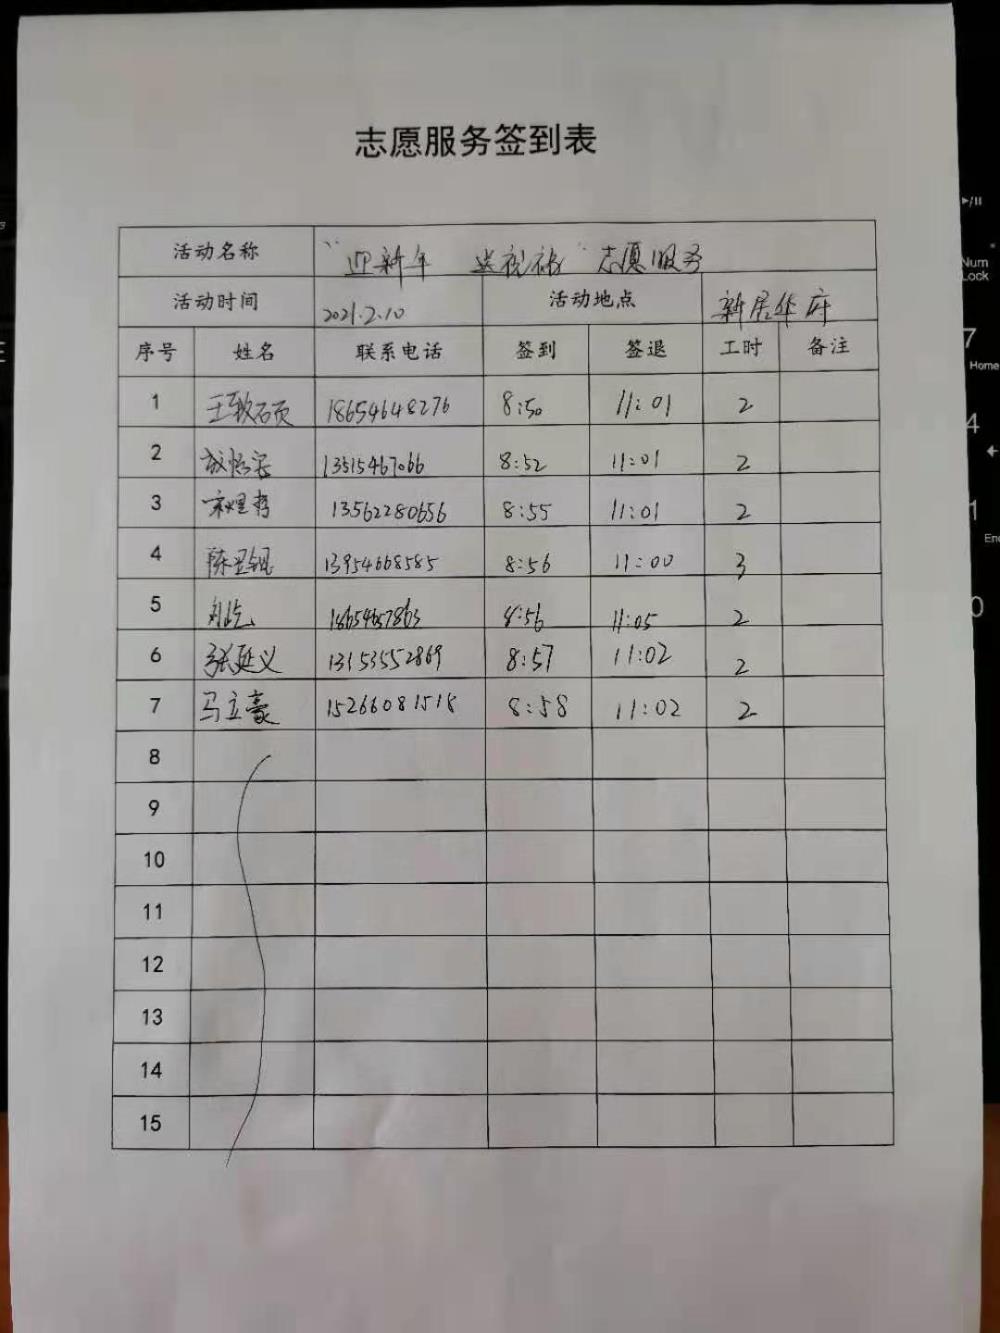 志愿服务签到表
活动名称 "迎新年 送祝福"志愿服务
活动时间 2021.2.10 活动地点 新居华府
序号 姓名 联系电话 签到 签退 工时 备注
1 18654648276 8:50 11:01 2
2 13515467066 8:52 11:01 2
3 13562280656 8:55 11:01 2
4 13954668585 8:56 11:00 3
5 18654657863 8:56 11:05 2
6 张延义 13153552869 8:57 11:02 2
7 马立豪 15266081518 8:58 11:02 2
8
9
10
11
12
13
14
15
Num
Lock
7
Home
4
1
0